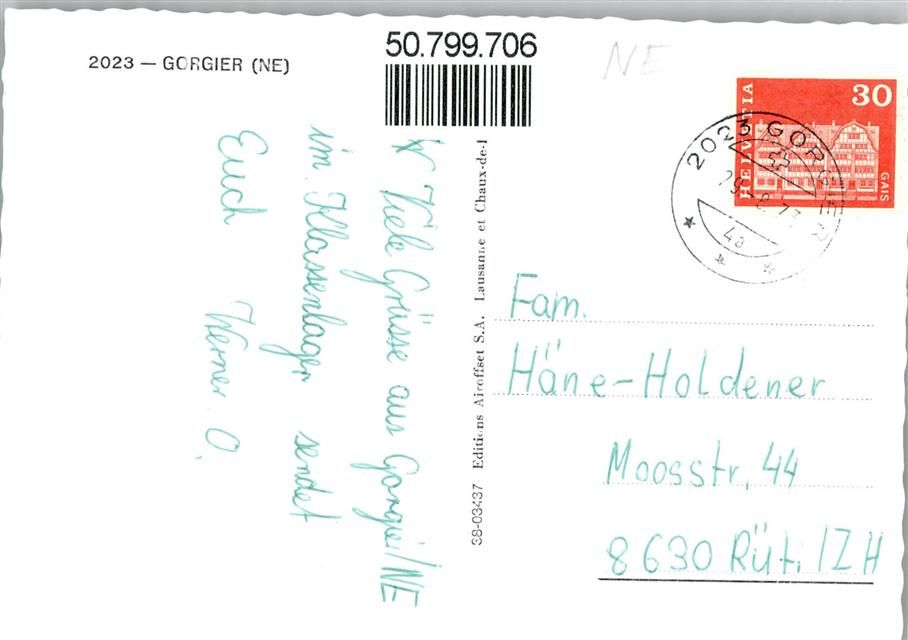 2023 — GORGIER (NE)
50.799.706
NE
HELVETIA
30
GAIS
2023 GORGIER
4a
Viele Grüsse aus Gorgier/NE
im Klassenlager sendet
Euch Werner O.
38-03437 Editions Airoffset S.A. Lausanne et Chaux-de-
Fam.
Häne-Holdener
Moosstr. 44
8630 Rüti/ZH